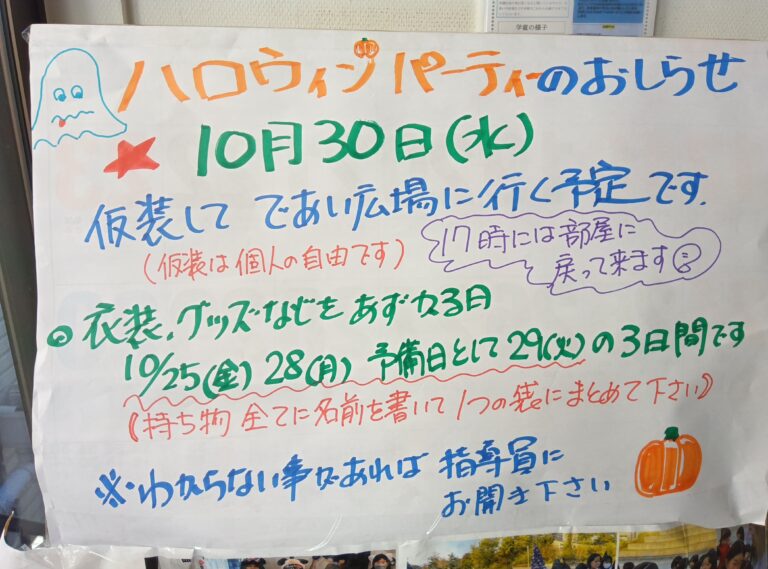 学童の様子
ハロウィン パーティーのおしらせ
10月30日(水)
仮装して であい広場に行く予定です.
(仮装は個人の自由です)
17時には部屋に
戻って来ます
◎ 衣装、グッズなどを あずかる日
10/25(金) 28(月) 予備日として 29(火)の3日間です
(持ち物 全てに名前を書いて 1つの袋にまとめて下さい)
※わからない事があれば 指導員に
お聞き下さい